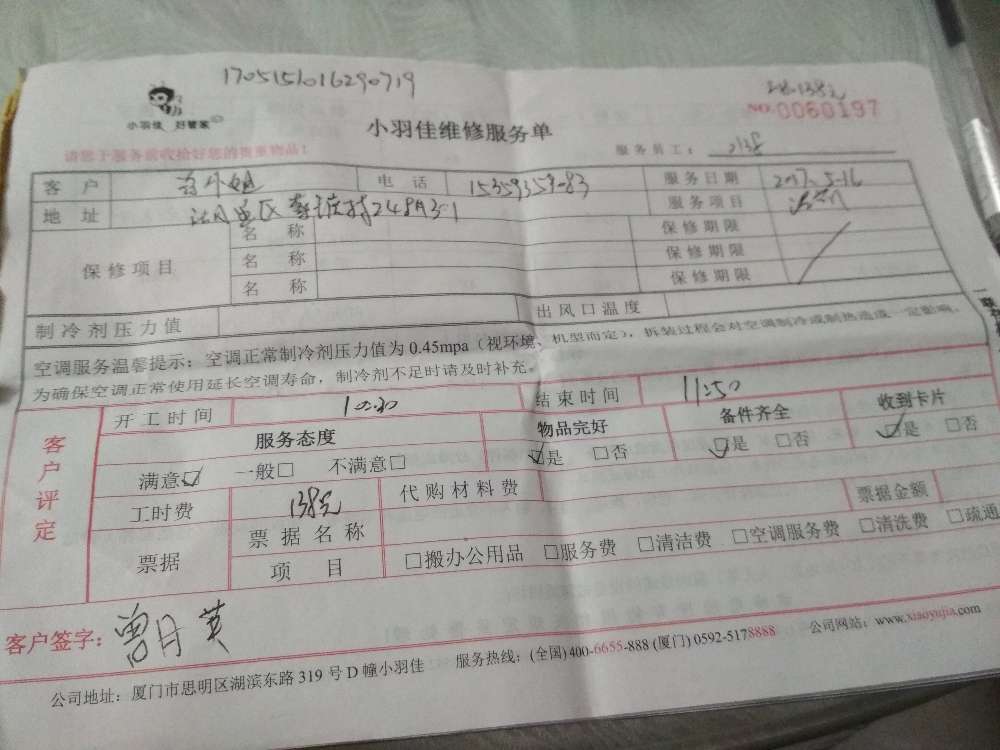 1705151016290719
138元
小羽佳 好管家
小羽佳维修服务单
NO.0060197
请您于服务前收拾好您的贵重物品!
服务员工: 2138
客户 电话 服务日期 2017.5-16
地址 248号3-1 服务项目
保修项目 名称 保修期限
名称 保修期限
名称 保修期限
制冷剂压力值 出风口温度
空调服务温馨提示:空调正常制冷剂压力值为 0.45mpa(视环境、机型而定),拆装过程会对空调制冷或制热造成一定影响,
为确保空调正常使用延长空调寿命,制冷剂不足时请及时补充。
客户评定
开工时间 10:30 结束时间 11:50
服务态度 物品完好 备件齐全 收到卡片
满意☑ 一般□ 不满意□ ☑是 □否 ☑是 □否 ☑是 □否
工时费 138元 代购材料费 票据金额
票据 票据名称
项目 □搬办公用品 □服务费 □清洁费 □空调服务费 □清洗费 □疏通
客户签字: 曾月英
公司地址:厦门市思明区湖滨东路 319 号 D 幢小羽佳 服务热线:(全国)400-6655-888 (厦门) 0592-5178888 公司网站:www.xiaoyujia.com